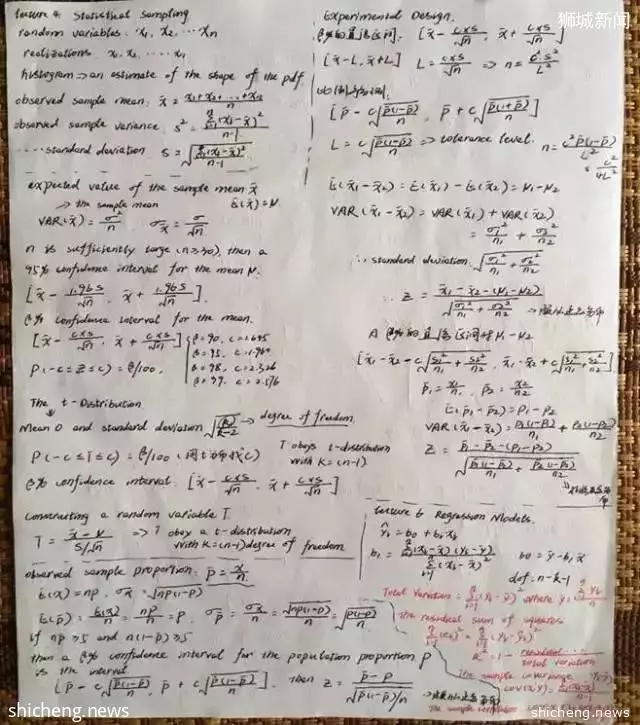 狮城新闻
Lecture 4 Statistical Sampling
random variables: X₁, X₂ ... Xn
realizations: x₁, x₂, ... xn
histogram → an estimate of the shape of the pdf.
observed sample mean: x̄ = (x₁+x₂+...+xn)/n
observed sample variance: s² = Σ(xᵢ-x̄)²/(n-1)
standard deviation s = √(Σ(xᵢ-x̄)²/(n-1))
expected value of the sample mean x̄
→ the sample mean E(x̄)=μ
VAR(x̄) = σ²/n σx̄ = σ/√n
n is sufficiently large (n≥30), then a
95% confidence interval for the mean μ.
[x̄ - 1.96s/√n, x̄ + 1.96s/√n].
β% confidence interval for the mean.
[x̄ - c×s/√n, x̄ + c×s/√n]
β=90, c=1.645
β=95, c=1.960
β=98, c=2.326
β=99, c=2.576
P(-c≤Z≤c) = β/100.
The t-Distribution
Mean 0 and standard deviation √(k/(k-2)) → degree of freedom.
P(-c≤T≤c) = β/100 T obeys t-distribution
with k=(n-1)
β% confidence interval: [x̄ - c×s/√n, x̄ + c×s/√n]
Constructing a random variable T
T = (x̄-μ)/(s/√n) => T obey a t-distribution
with k=(n-1) degree of freedom
observed sample proportion: p̄ = x/n
E(x) = np, σx = √(np(1-p))
E(p̄) = E(x)/n = np/n = p, σp̄ = σx/n = √(np(1-p))/n = √(p(1-p)/n)
if np≥5 and n(1-p)≥5
then a β% confidence interval for the population proportion p
is the interval
[p̄ - c√(p̄(1-p̄)/n), p̄ + c√(p̄(1-p̄)/n)]. then Z = (p̄-p)/√(p(1-p)/n)
Experimental Design.
[x̄ - c×s/√n, x̄ + c×s/√n]
[x̄-L, x̄+L] L = c×s/√n => n = c²s²/L²
[p̄ - c√(p̄(1-p̄)/n), p̄ + c√(p̄(1+p̄)/n)]
L = c√(p̄(1-p̄)/n) => tolerance level. n = c²p̄(1-p̄)/L²
= c²/4L²
E(x̄₁-x̄₂) = E(x̄₁)-E(x̄₂) = μ₁-μ₂
VAR(x̄₁-x̄₂) = VAR(x̄₁)+VAR(x̄₂)
= σ₁²/n₁ + σ₂²/n₂
∴ standard deviation. √(σ₁²/n₁+σ₂²/n₂)
∴ Z = (x̄₁-x̄₂-(μ₁-μ₂))/√(σ₁²/n₁+σ₂²/n₂)
[x̄₁-x̄₂-c√(s₁²/n₁+s₂²/n₂), x̄₁-x̄₂+c√(s₁²/n₁+s₂²/n₂)]
p̄₁ = x₁/n₁, p̄₂ = x₂/n₂
E(p̄₁-p̄₂) = p₁-p₂
VAR(x̄₁-x̄₂) = p₁(1-p₁)/n₁ + p₂(1-p₂)/n₂
Z = (p̄₁-p̄₂-(p₁-p₂))/√(p₁(1-p₁)/n₁ + p₂(1-p₂)/n₂)
Lecture 6 Regression Models.
ŷᵢ = b₀+b₁xᵢ
b₁ = Σ(xᵢ-x̄)(yᵢ-ȳ)/Σ(xᵢ-x̄)² b₀ = ȳ-b₁x̄
dof = n-k-1
Total Variation = Σ(yᵢ-ȳ)² where ȳ = Σyᵢ/n
the residual sum of squares
Σ(eᵢ)² = Σ(yᵢ-ŷᵢ)²
R² = 1 - residual/total variation
The sample covariance
cov(x,y) =
The sample correlation
shicheng.news
shicheng.news